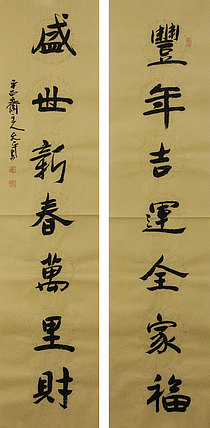 豐年吉運全家福
盛世新春萬里財